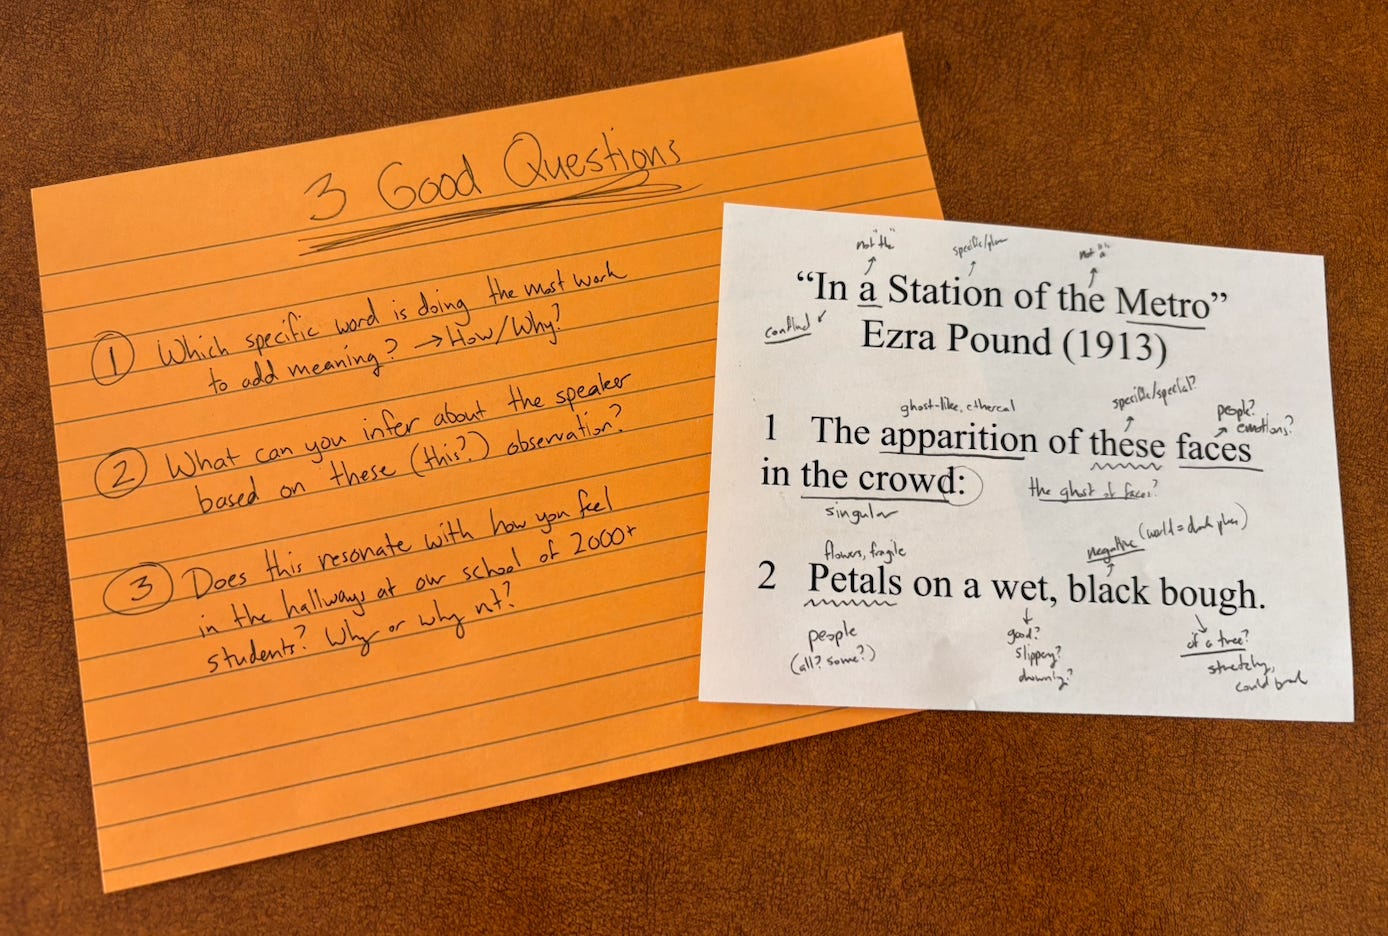 3 Good Questions
① Which specific word is doing the most work
to add meaning? → How/Why?
② What can you infer about the speaker
based on these (this?) observation?
③ Does this resonate with how you feel
in the hallways at our school of 2000+
students? Why or why not?
not "the"
specific/place
not "a"
“In a Station of the Metro”
Ezra Pound (1913)
ghost-like, ethereal
specific/special?
people?
emotions?
1 The apparition of these faces
in the crowd:
the ghost of faces?
singular
flowers, fragile
negative (world = dark place)
2 Petals on a wet, black bough.
people
(all? some?)
good?
slippery?
drowning?
of a tree?
stretchy,
could break